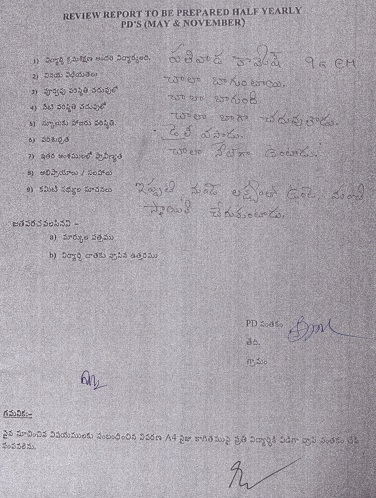 REVIEW REPORT TO BE PREPARED HALF YEARLY
PD'S (MAY & NOVEMBER)
1) విద్యార్థి క్రమశిక్షణ అందరి విద్యార్థులది. రామకృష్ణ 9a EM
2) విషయ విధేయతలు చాలా బాగుంటాయి.
3) పూర్వపు పరిస్థితి చదువులో చాలా బాగుంది
4) నేటి పరిస్థితి చదువులో చాలా బాగా చదువుతాడు
5) స్కూలుకు హాజరు పరిస్థితి. డైలీ వస్తాడు.
6) పరిశుభ్రత చాలా నీట్‌గా ఉంటాడు.
7) ఇతర అంశములలో ప్రావీణ్యత
8) అభిప్రాయాలు / సలహాలు
9) కమిటీ సభ్యుల సూచనలు ఇప్పటి నుండే లక్ష్యంతో ఉండి మంచి
స్థాయికి చేరుకుంటాడు.
జతపరచవలసినవి –
a) మార్కుల పత్రము
b) విద్యార్థి దాతకు వ్రాసిన ఉత్తరము
PD సంతకం
తేది.
గ్రామం
గమనిక:-
పైన సూచించిన విషయములకు సంబంధించిన వివరణ A4 సైజు కాగితముపై ప్రతి విద్యార్థికి విడిగా వ్రాసి సంతకం చేసి
పంపవలెను.